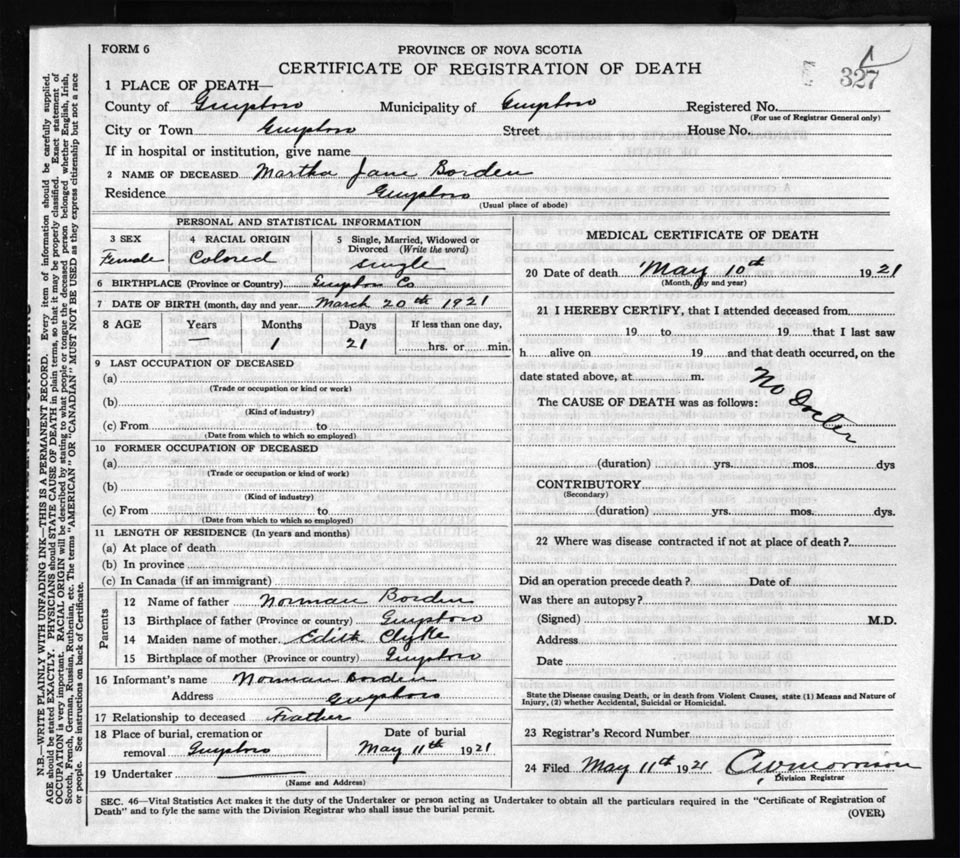 FORM 6
PROVINCE OF NOVA SCOTIA
CERTIFICATE OF REGISTRATION OF DEATH
327
1 PLACE OF DEATH—
County of Guysboro Municipality of Guysboro Registered No.
(For use of Registrar General only)
City or Town Guysboro Street House No.
If in hospital or institution, give name
2 NAME OF DECEASED Martha Jane Borden
Residence Guysboro
(Usual place of abode)
PERSONAL AND STATISTICAL INFORMATION
3 SEX 4 RACIAL ORIGIN 5 Single, Married, Widowed or Divorced (Write the word)
Female Colored single
6 BIRTHPLACE (Province or Country) Guysboro Co
7 DATE OF BIRTH (month, day and year March 20th 1921
8 AGE Years Months Days If less than one day,
— 1 21 hrs. or min.
9 LAST OCCUPATION OF DECEASED
(a)
(Trade or occupation or kind or work)
(b)
(Kind of industry)
(c) From to
(Date from which to which so employed)
10 FORMER OCCUPATION OF DECEASED
(a)
(Trade or occupation or kind of work)
(b)
(Kind of industry)
(c) From to
(Date from which to which so employed)
11 LENGTH OF RESIDENCE (In years and months)
(a) At place of death
(b) In province
(c) In Canada (if an immigrant)
Parents
12 Name of father Norman Borden
13 Birthplace of father (Province or country) Guysboro
14 Maiden name of mother Edith Clyke
15 Birthplace of mother (Province or country) Guysboro
16 Informant's name Norman Borden
Address Guysboro
17 Relationship to deceased Father
18 Place of burial, cremation or removal Guysboro Date of burial May 11th 1921
19 Undertaker
(Name and Address)
MEDICAL CERTIFICATE OF DEATH
20 Date of death May 10th 1921
(Month, day and year)
21 I HEREBY CERTIFY, that I attended deceased from
19 to 19 that I last saw
h alive on 19 and that death occurred, on the
date stated above, at m.
The CAUSE OF DEATH was as follows:
No Docter
(duration) yrs. mos. dys
CONTRIBUTORY
(Secondary)
(duration) yrs. mos. dys.
22 Where was disease contracted if not at place of death?
Did an operation precede death? Date of
Was there an autopsy?
(Signed) M.D.
Address
Date
State the Disease causing Death, or in death from Violent Causes, state (1) Means and Nature of
Injury, (2) whether Accidental, Suicidal or Homicidal.
23 Registrar's Record Number
24 Filed May 11th 1921 CW Morrison
Division Registrar
SEC. 46—Vital Statistics Act makes it the duty of the Undertaker or person acting as Undertaker to obtain all the particulars required in the "Certificate of Registration of
Death" and to fyle the same with the Division Registrar who shall issue the burial permit.
(OVER)
N.B.—WRITE PLAINLY WITH UNFADING INK—THIS IS A PERMANENT RECORD. Every item of information should be carefully supplied.
AGE should be stated EXACTLY. PHYSICIANS should STATE CAUSE OF DEATH in plain terms, so that it may be properly classified. Exact statement of
OCCUPATION is very important. RACIAL ORIGIN will be described by stating to what people or tongue the deceased person belonged whether English, Irish,
Scotch, French, German, Russian, Ruthenian, etc. The terms "AMERICAN" OR "CANADIAN" MUST NOT BE USED as they express citizenship but not a race
or people. See instructions on back of Certificate.